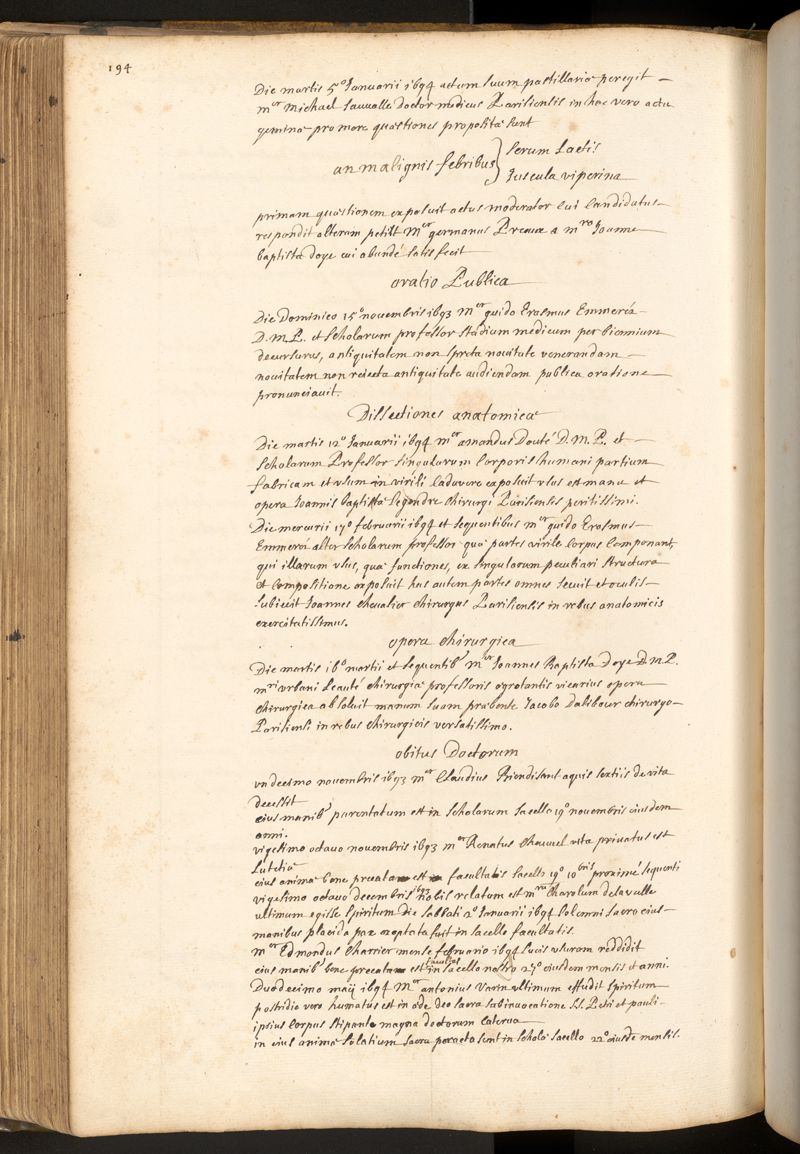 194
Die martis 5° Januarii 1694 actum suum pastillaria peregit
mer Michael Sauvalle Doctor medicus Parisiensis in hac vero actu
geminae pro more quaestiones propositae sunt
an malignis febribus } Serum Lactis
Juscula viperina
primam quaestionem exposuit actus moderator cui Candidatus
respondit alteram petiit Mer germanus Preaux a mro Joanne
baptista Doye cui abundé satis fecit
oratio Publica
Die Dominico 15° novembris 1693 Mer guido Erasmus Emmeréz
D.M.P. et Scholarum professor Stadium medicum per biennium
decursurus, antiquitatem non spreta novitate venerandam
novitatem non reiecta antiquitate audiendam publica oratione
pronunciavit.
Dissectiones anatomicae
Die martis 12° Januarii 1694 mer amandus Douté D.M.P. et
Scholarum Professor singularum Corporis humani partium
fabricam et usum in virili Cadavere exposuit usus est manu et
opera Joannis baptista Legendre chirurgi Parisiensis peritissimi.
Die mercurii 17° februarii 1694 et sequentibus mer guido Erasmus
Emmeréz alter Scholarum professor quae partes virile Corpus Componant,
qui illarum usus, quae functiones, ex singularum peculiari structura
et Compositione exposuit has autem partes omnes secuit et oculis
subiecit Joannes Chevalier chirurgus Parisiensis in rebus anatomicis
exercitatissimus.
opera Chirurgica
Die martis 16° martii et sequentib mer Joannes Baptista Doye D.M.P.
mri urbani Leauté chirurgiae professoris aegrotantis vicarius opera
chirurgica absoluit manum suam praebente Jacobo Dalibour chirurgo
Parisiensi in rebus Chirurgicis versatissimo.
obitus Doctorum
undecimo novembris 1693 mer Claudius Puendisant aquis sextiis de vita
decessit
eius manib parentatum est in Scholarum sacello 19° novembris eiusdem
anni.
vigesimo octavo novembris 1693 mer Renatus Chauvel vita privatus est
Lutetiae
eius animae bene precatum est in facultatis sacello 19° 10bris proximé sequenti
vigesimo octavo decembris 1693 nobis relatum est mrum Carolum delavalle
ultimum egisse Spiritum Die Sabbati 2° Januarii 1694 Solemni sacro eius
manibus placida pax exoptata fuit in sacello facultatis.
mer Edmondus Charrier mense februario 1694 Lucis usuram reddidit
eius manib bene precatum est in sacello nostro 27° eiusdem mensis et anni.
Duodecimo maij 1694 Mer antonius Varin ultimum effudit Spiritum
postridie vero humatus est in aede deo sacra sub invocatione S.S. Petri et pauli
ipsius Corpus stipante magna doctorum Caterva
in eius animae Solatium Sacra peracta sunt in Schola Sacello 22° eiusde mensis.